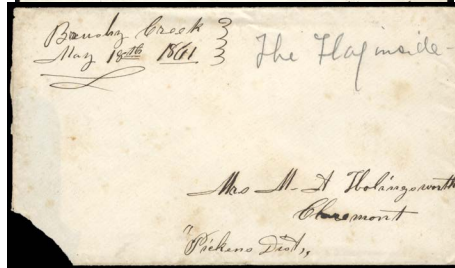 Brushy Creek
May 18th 1861
The Flag inside -
Mrs M. A Holingsworth
Claremont
"Pickens Dist,,